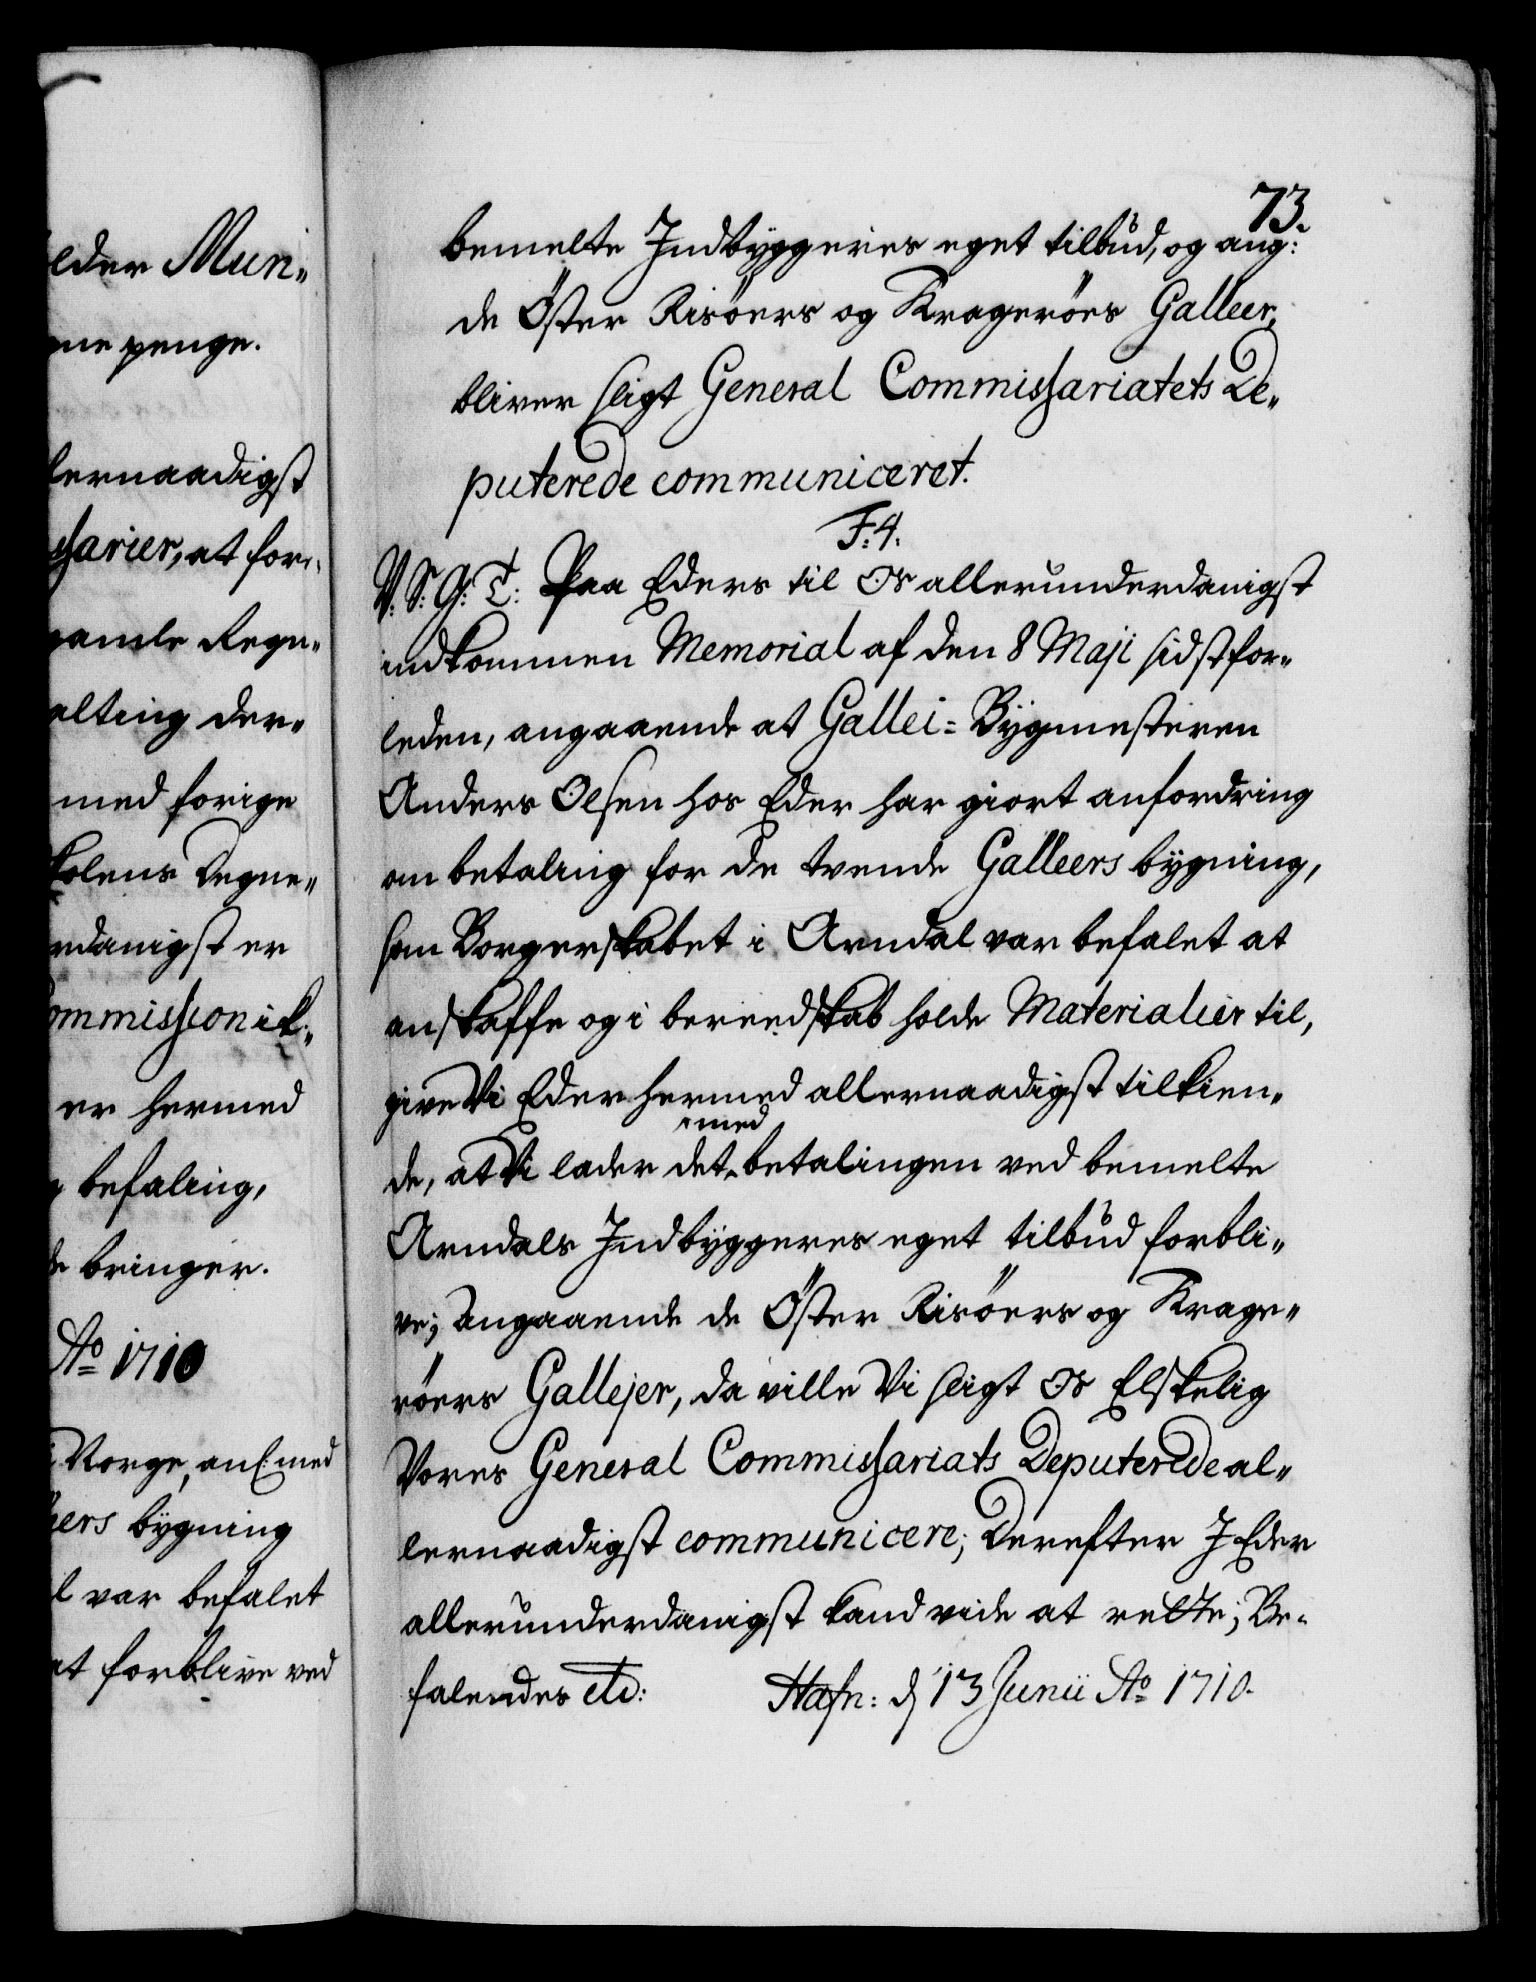 lder Mun„
gne penge.
lernaadigst
ssarier, at for„
gamle Regn„
alting der„
med forige
kolens degne„
rdanigst er
ommission ik„
er hermed
befaling,
bringer.
Ao 1710
i Norge, anl: med
hers bygning
l var befalet
at forblive ved
73.
bemelte Indbyggeres eget tilbud, og ang:
de Öster Risöers og Krageröes Galleer,
bliver sligt General Commissariatets De„
puterede communiceret.
F: 4.
V: S: G: T: Paa Eders til Os allerunderdanigst
indkommen Memorial af den 8 Maji sidstfor„
leden, angaaende at Gallei= Bygmesteren
Anders Olsen hos Eder har giort anfordring
om betaling for de tvende Galleers bygning,
som Borgerskabet i Arndal var befalet at
anskaffe og i bereedskab holde Materialier til,
give Vi Eder hermed allernaadigst tilkien„
med
de, at Vi lader det betalingen ved bemelte
Arndals Indbyggeres eget tilbud forbli„
ve; Angaaende de Öster Risöers og Krage„
röers Gallejer, da ville Vi sligt Os Elskelig
Vores General Commissariats Deputerede al„
lernaadigst communicere; Derefter I Eder
allerunderdanigst kand vide at rette; Be„
falendes etc: Hafn: d 13 Junii Ao 1710.